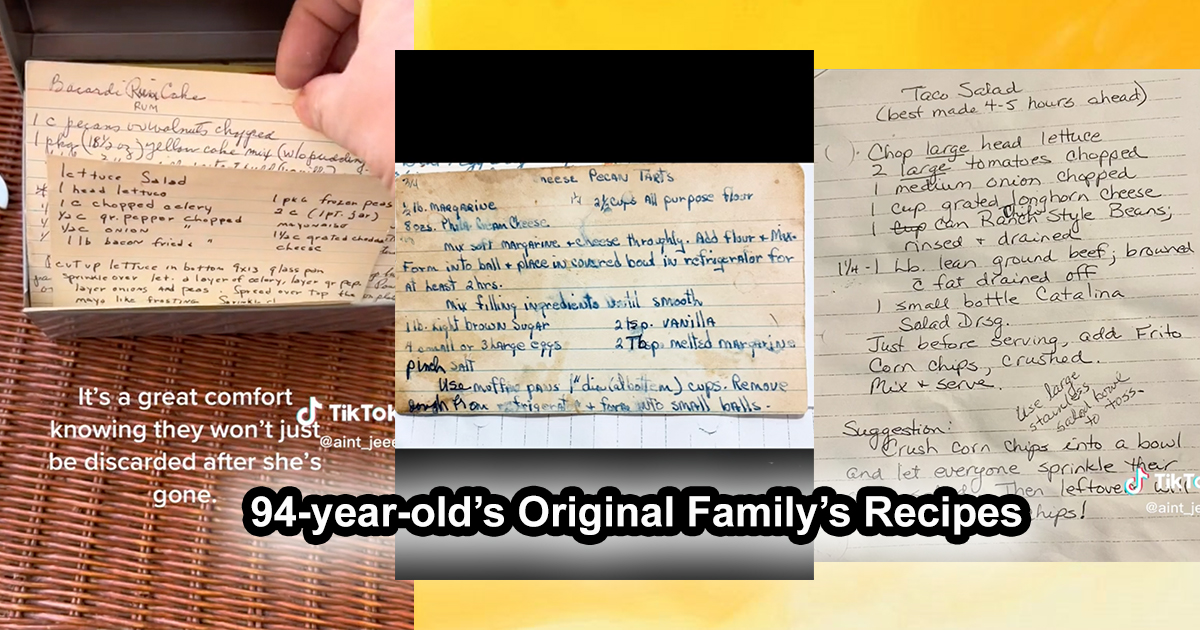 Bacardi Rum Cake
RUM
1 c pecans or walnuts chopped
1 pkg (18½ oz) yellow cake mix (w/o pudding
lettuce Salad
1 head lettuce
1 c chopped celery
½ c gr. pepper chopped
½ c onion "
1 lb bacon fried & "
1 pkg frozen peas
2 c (1 pt. jar)
mayonaise
1½ c grated cheddar
cheese
cut up lettuce in bottom 9x13 glass pan
Sprinkle over let. a layer of celery, layer gr pep.
layer onions and peas. Spread over top the
mayo like frosting. Sprinkle
It's a great comfort
knowing they won't just
be discarded after she's
gone.
TikTok
@aint_jeee
heese Pecan Tarts
½ lb. margarine
2½ cups All purpose flour
8 ozs. Phila Cream Cheese
mix soft margarine + cheese throughly. Add flour & mix.
Form into ball & place in covered bowl in refrigerator for
at least 2 hrs.
Mix filling ingredients until smooth
1 lb. light brown sugar
2 tsp. vanilla
4 small or 3 large eggs
2 Tbsp melted margarine
pinch salt
Use moffin pans 1" dia (at bottom) cups. Remove
dough from refrigerator & form into small balls.
Taco Salad
(best made 4-5 hours ahead)
Chop large head lettuce
2 large tomatoes chopped
1 medium onion chopped
1 cup grated longhorn cheese
1 can Ranch Style Beans;
rinsed & drained
1¼ - 1 lb. lean ground beef; browned
c fat drained off
1 small bottle Catalina
Salad Drsg.
Just before serving, add Frito
Corn chips, crushed.
Mix & serve.
Use large
stainless
salad bowl
to toss.
Suggestion:
Crush corn chips into a bowl
and let everyone sprinkle their
Then leftover
chips!
TikTo
@aint_je
94-year-old's Original Family's Recipes